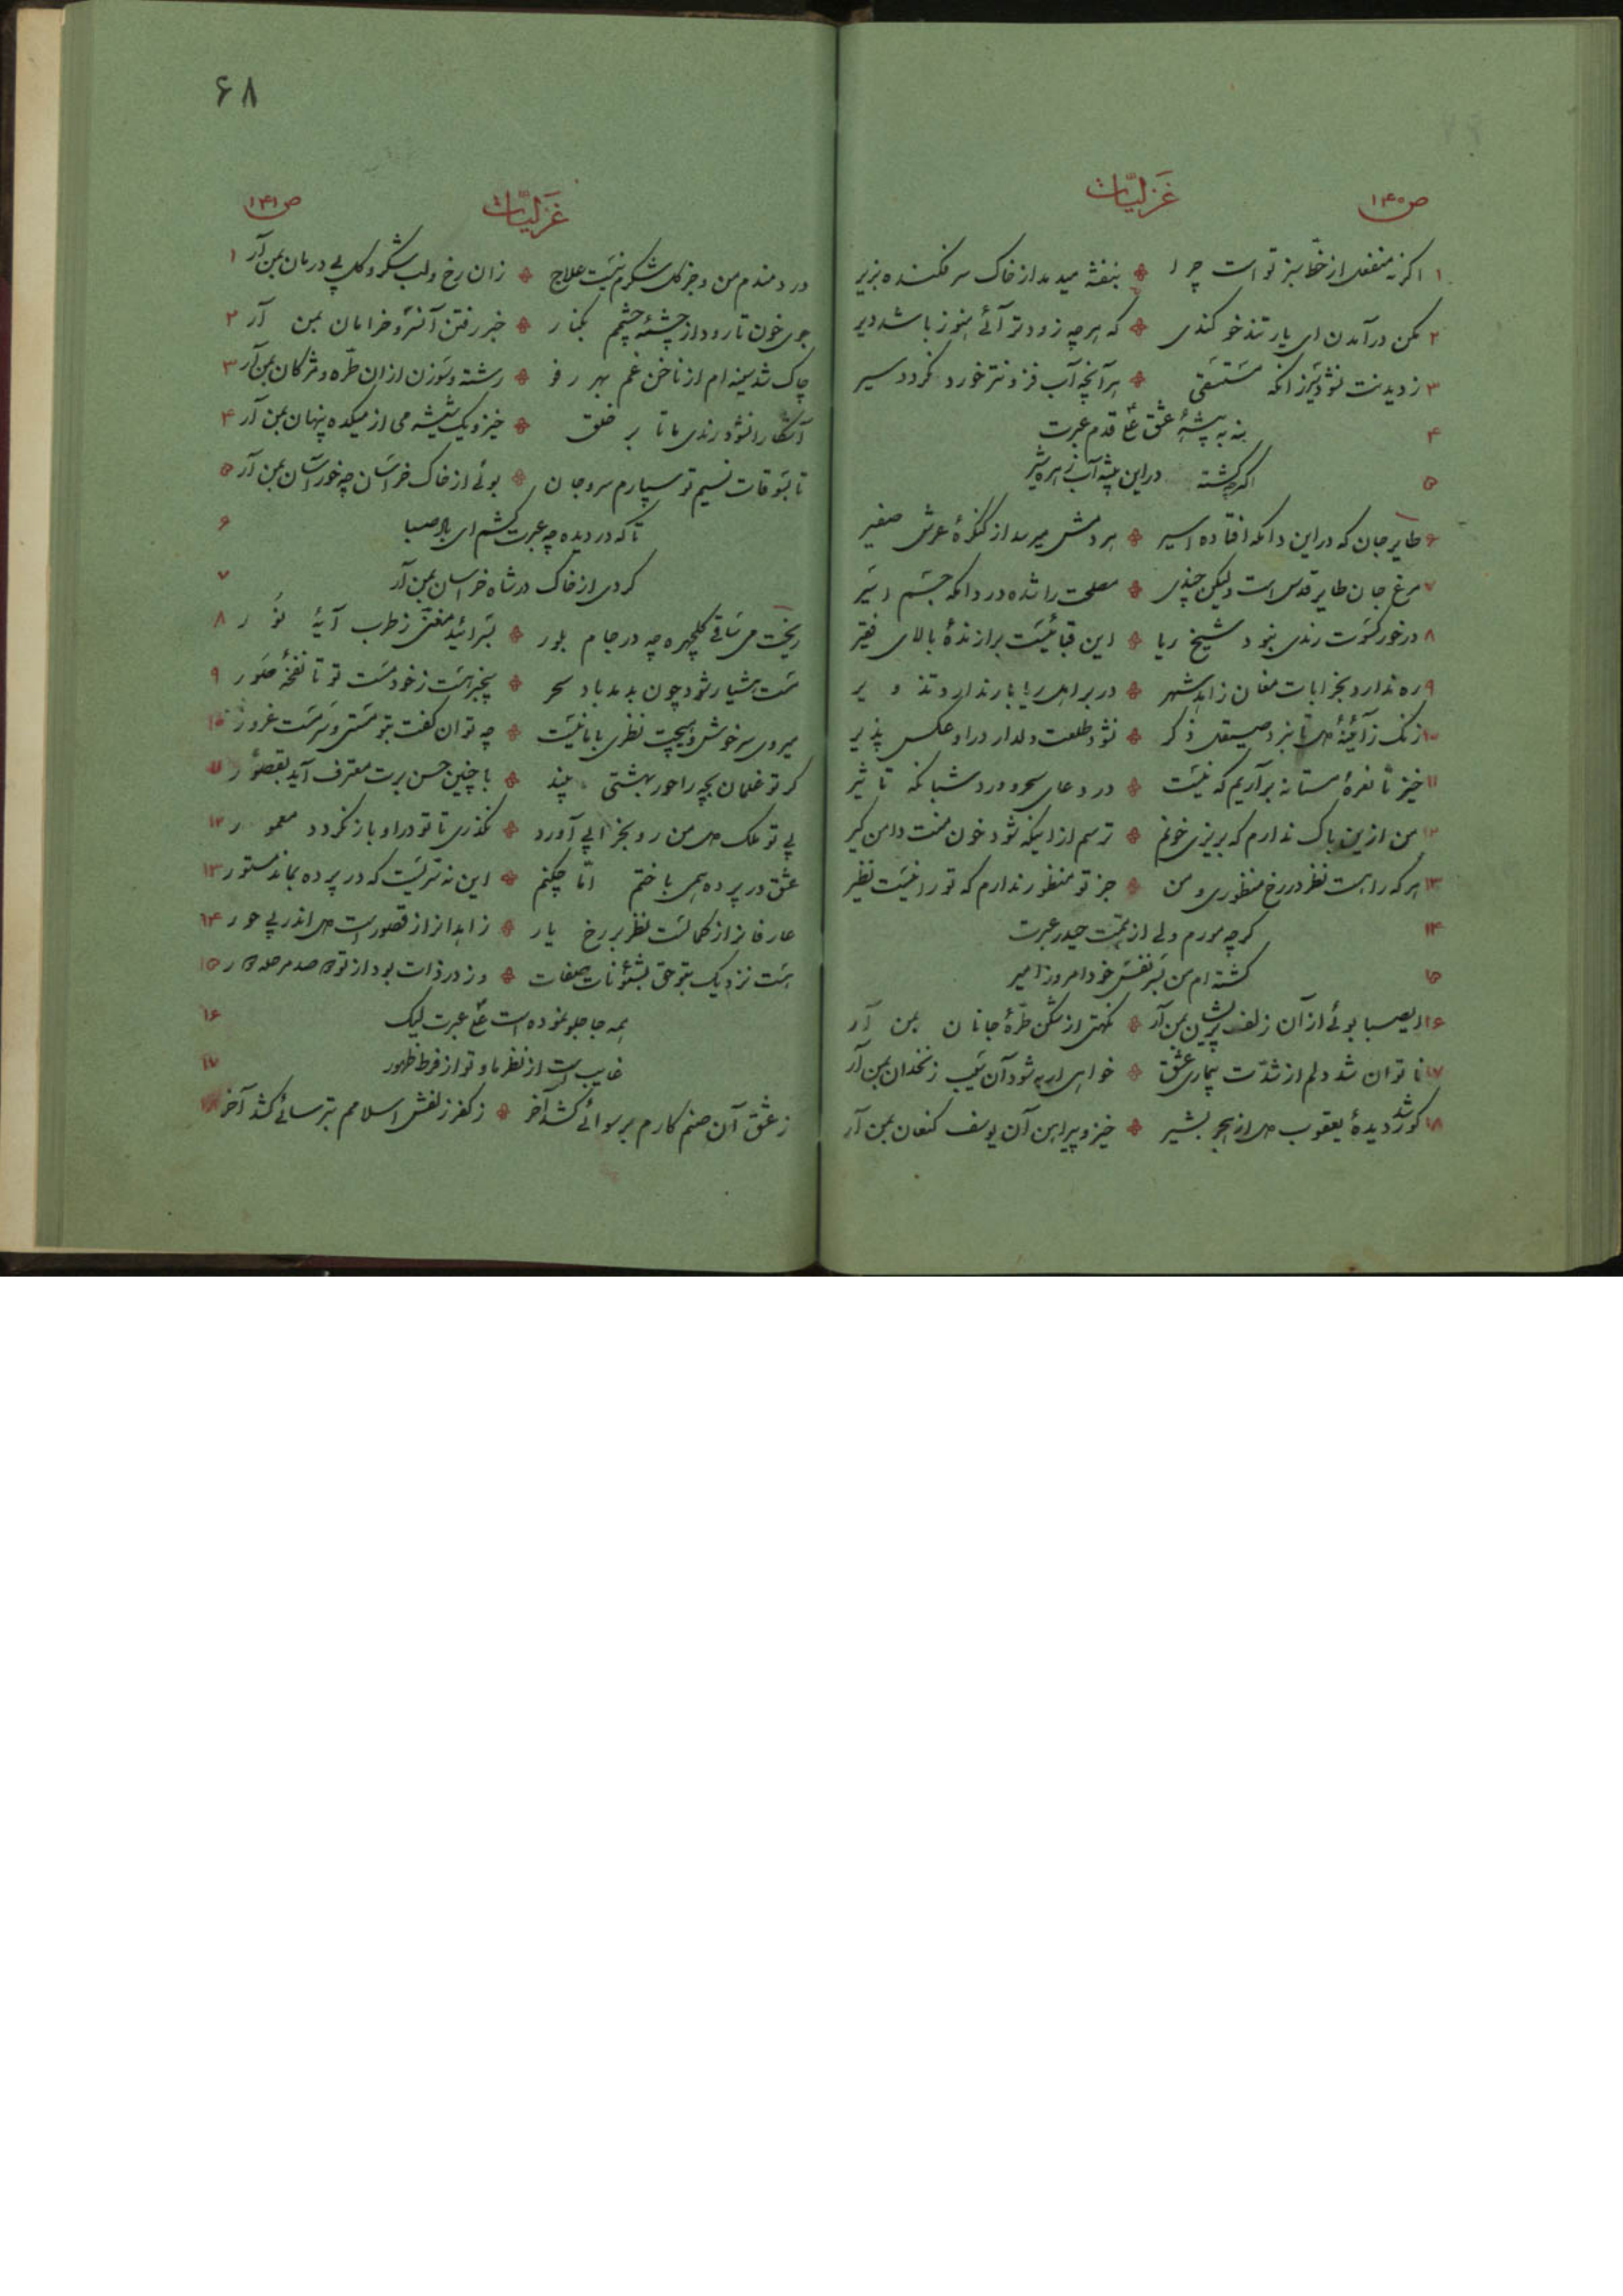 ص۱۴۰
غَزلیّات
۱ اگر نه منفعل از خطّ سبز تو است چرا ❉ بنفشه میدمد از خاک سر فکنده بزیر
۲ مکن درآمدن ای یار تندخو کندی ❉ که هرچه زودتر آئی هنوز باشد دیر
۳ ز دیدنت نشود سیر زانکه مستسقی ❉ هر آنچه آب فزونتر خورد نگردد سیر
۴ بنه به پیشهٔ عشق علی قدم عبرت
۵ اگرچه گشته در این بیشه آب زهره شیر
۶ طایر جان که در این دامگه افتاده اسیر ❉ هر دمش میرسد از کنگرهٔ عرش صفیر
۷ مرغ جان طایر قدس است ولیکن چندی ❉ مصلحت را شده در دامگه جسم اسیر
۸ در خور کسوت رندی نبود شیخ ریا ❉ این قبا نیست برازندهٔ بالای فقیر
۹ ره ندارد بخرابات مغان زاهد شهر ❉ در بر اهل ریا بار ندارد تزویر
۱۰ زنگ ز آئینهٔ دل تا نبرد صیقل ذکر ❉ نشود طلعت دلدار در او عکس پذیر
۱۱ خیز تا نعرهٔ مستانه برآریم که نیست ❉ در دعای سحر و ورد شبانگه تاثیر
۱۲ من از این باک ندارم که بریزی خونم ❉ ترسم از اینکه شود خون منت دامن گیر
۱۳ هر که را هست نظر در رخ منظوری و من ❉ جز تو منظور ندارم که تو را نیست نظیر
۱۴ گرچه مورم ولی از همّت حیدر عبرت
۱۵ گشته‌ام من بسر نفس خود امروز امیر
۱۶ ایصبا بوئی از آن زلف پریشان بمن آر ❉ نکهتی از شکن طرّهٔ جانان بمن آر
۱۷ ناتوان شد دلم از شدّت بیماری عشق ❉ خواهی ار به شود آن سیب زنخدان بمن آر
۱۸ کور شد دیدهٔ یعقوب دل از هجر بشیر ❉ خیز و پیراهن آن یوسف کنعان بمن آر
۶۸
غَزلیّات
ص۱۴۱
دردمندم من و جز گل شکرم نیست علاج ❉ زان رخ و لب شکر و گل پی درمان بمن آر ۱
جوی خون تا رود از چشمهٔ چشمم بکنار ❉ خبر رفتن آنسرو خرامان بمن آر ۲
چاک شد سینه‌ام از ناخن غم بهر رفو ❉ رشته و سوزن از ان طرّه و مژگان بمن آر ۳
آشکارا نشود رندی ما تا بر خلق ❉ خیز و یک شیشه می از میکده پنهان بمن آر ۴
تا بسوقات نسیم تو سپارم سر و جان ❉ بوئی از خاک خراسان چه خور آسان بمن آر ۵
تا که در دیده چه عبرت کشم ای باد صبا ۶
گردی از خاک در شاه خراسان بمن آر ۷
ریخت می ساقی گلچهره چه در جام بلور ❉ بسرائید مغنّی ز طرب آیهٔ نور ۸
مست هشیار شود چون بدمد باد سحر ❉ بیخبر هست ز خود مست تو تا نفخهٔ صور ۹
میروی سرخوش و هیچت نظری با ما نیست ❉ چه توان گفت بتو مستی و سرمست غرور ۱۰
گر تو غلمان بچه را حور بهشتی بیند ❉ با چنین حسن برت معترف آید بقصور ۱۱
بی تو ملک دل من رو بخرابی آورد ❉ نگذری تا تو در او باز نگردد معمور ۱۲
عشق در پرده همی باختم امّا چکنم ❉ این نه سرّیست که در پرده بماند مستور ۱۳
عارفانرا ز کمالست نظر بر رخ یار ❉ زاهدانرا ز قصور است دل اندر پی حور ۱۴
هست نزدیک بتو حق بشئونات صفات ❉ وز در ذات بود از تو صد مرحله دور ۱۵
همه جا جلوه نموده است علی عبرت لیک ۱۶
غایب است از نظر ما و تو از فرط ظهور ۱۷
ز عشق آن صنم کارم برسوائی کشد آخر ❉ ز کفر زلفش اسلامم بترسائی کشد آخر ۱۸